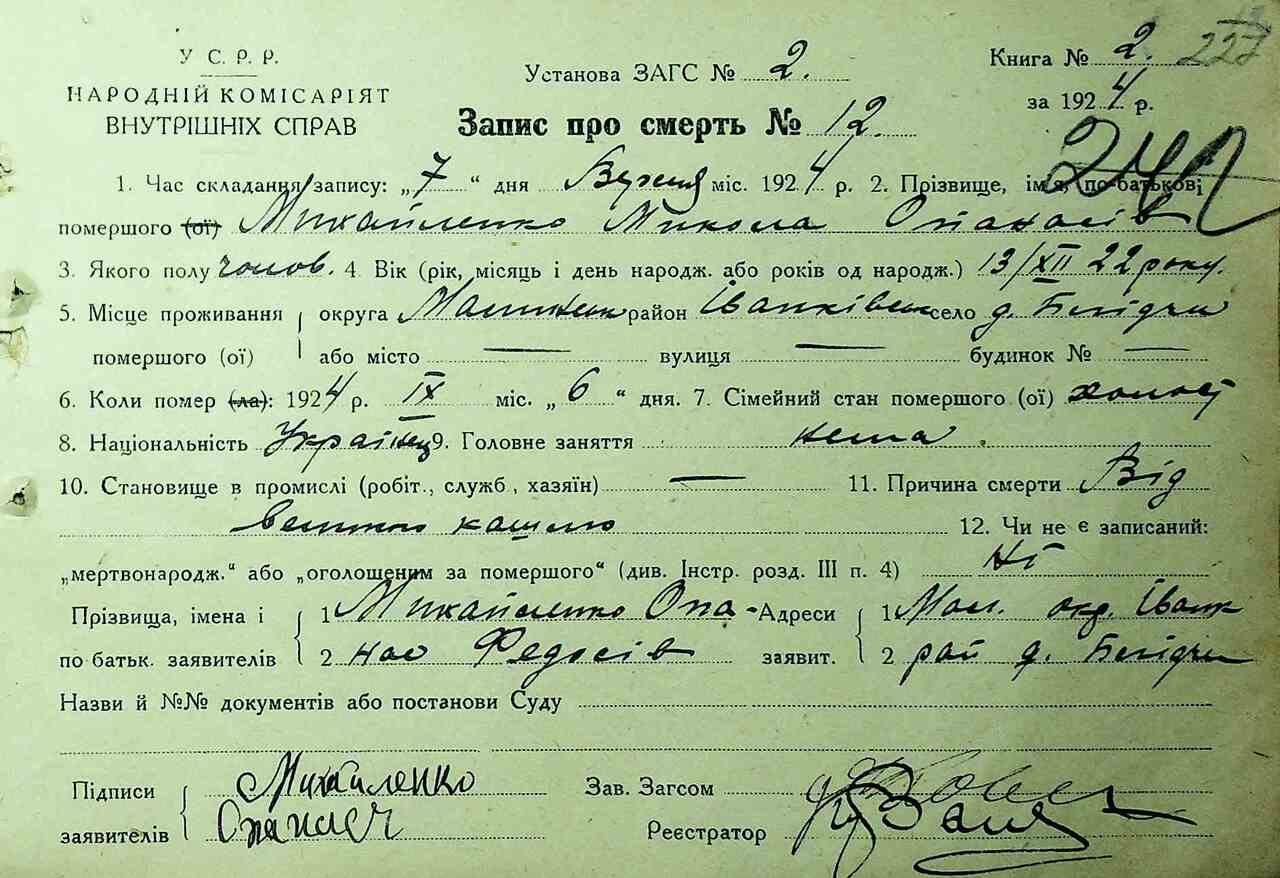 У С. Р. Р.
НАРОДНІЙ КОМІСАРІЯТ
ВНУТРІШНІХ СПРАВ
Установа ЗАГС № 2.
Запис про смерть № 12.
Книга № 2. 227
за 1924 р.
1. Час складання запису: „7“ дня Вересня міс. 1924 р. 2. Прізвище, ім'я, по-батькові
помершого (ої) Михайленко Микола Опанасів
3. Якого полу чолов. 4. Вік (рік, місяць і день народж. або років од народж.) 13/XII 22 року.
5. Місце проживання округа район Іванківськ село д.
помершого (ої) або місто — вулиця — будинок № —
6. Коли помер (ла): 1924 р. IX міс. „6“ дня. 7. Сімейний стан помершого (ої) холост
8. Національність Українец 9. Головне заняття нема.
10. Становище в промислі (робіт., служб, хазяїн) — 11. Причина смерти Від
великого кашлю 12. Чи не є записаний:
„мертвонародж.“ або „оголошеним за помершого“ (див. Інстр. розд. III п. 4) Ні
Прізвища, імена і 1 Михайленко Опа- Адреси 1 Мал. окр. Іванк
по батьк. заявителів 2 нас Федосів заявит. 2 рай д.
Назви й №№ документів або постанови Суду
Підписи Михайленко Зав. Загсом
заявителів Реєстратор